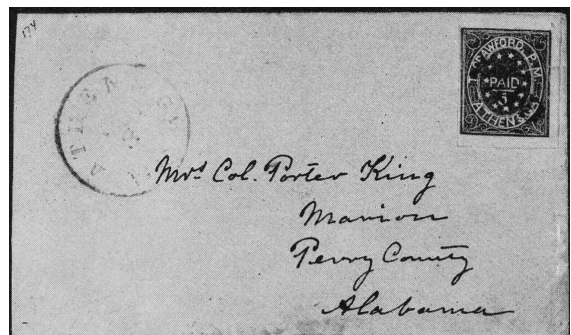 174
ATHENS
T. CRAWFORD, P.M.
PAID
5
ATHENS, GA
Mrs Col. Porter King
Marion
Perry County
Alabama